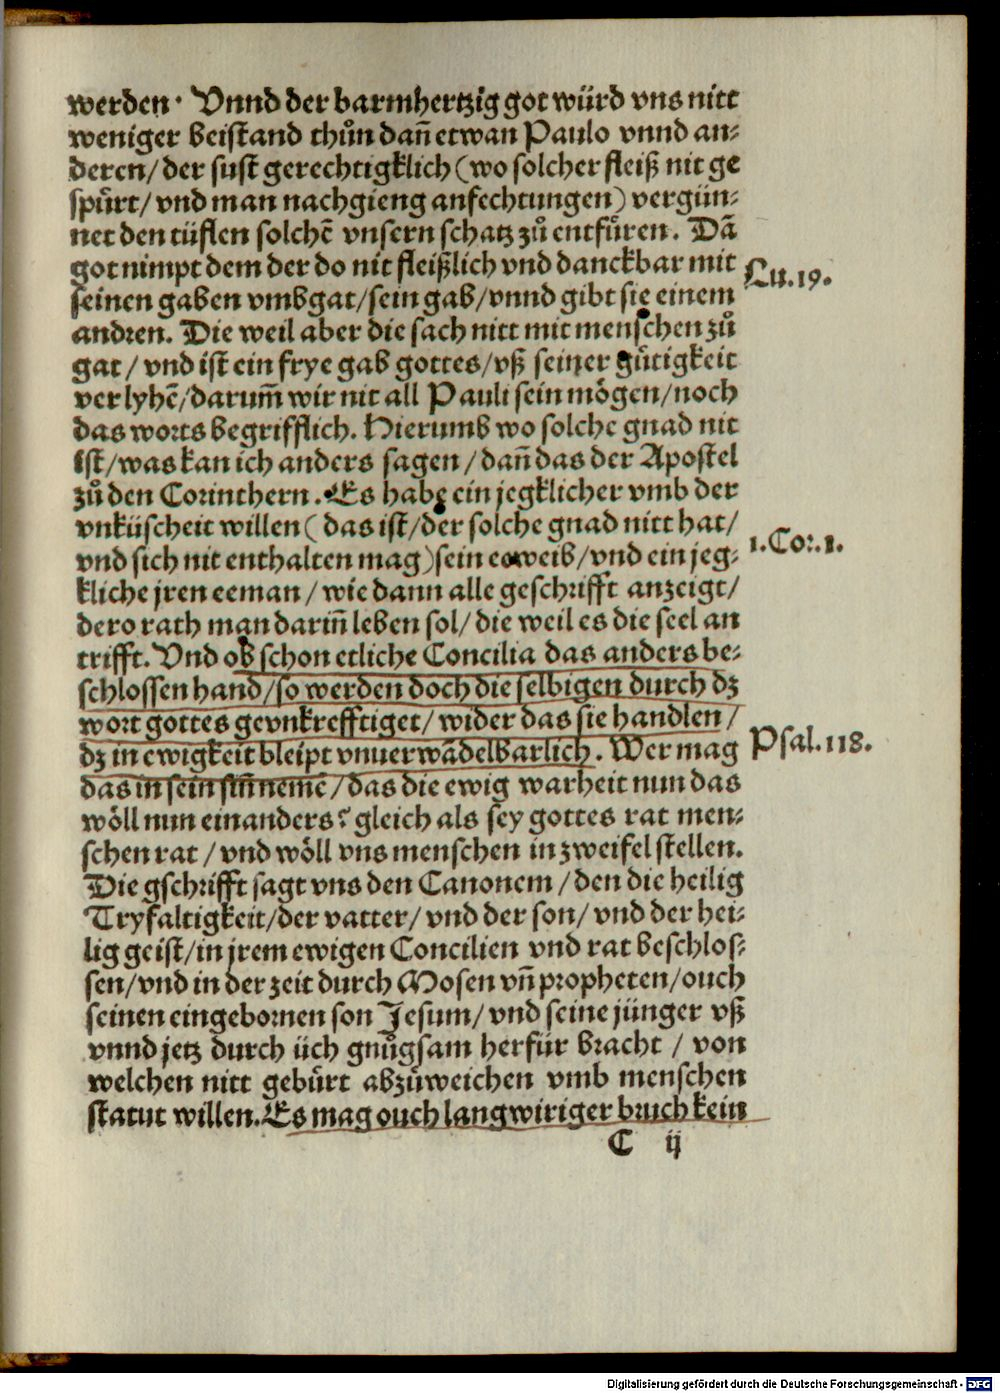 werden· Vnnd der barmhertzig got würd vns nitt
weniger beistand thůn dañ etwan Paulo vnnd an⸗
deren/ der sust gerechtigklich (wo solcher fleiß nit ge
spürt/ vnd man nachgieng anfechtungen) vergün⸗
net den tüflen solchē vnsern schatz zů entfüren. Dā
got nimpt dem der do nit fleißlich vnd danckbar mit
Lu.19.
seinen gaben vmbgat/sein gab/vnnd gibt sie einem
andren. Die weil aber die sach nitt mit menschen zů
gat/ vnd ist ein frye gab gottes/vß seiner gütigkeit
verlyhē/darum̄ wir nit all Pauli sein mögen/noch
das worts begrifflich. Hierumb wo solche gnad nit
ist/was kan ich anders sagen/dañ das der Apostel
zů den Corinthern. Es habe ein jegklicher vmb der
vnküscheit willen ( das ist/der solche gnad nitt hat/
vnd sich nit enthalten mag)sein eeweib/vnd ein jeg⸗
1.Cor.1.
kliche jren eeman/ wie dann alle geschrifft anzeigt/
dero rath man dariñ leben sol/ die weil es die seel an
trifft. Vnd ob schon etliche Concilia das anders be⸗
schlossen hand/so werden doch die selbigen durch dz
wort gottes gevnkrefftiget/ wider das sie handlen/
dz in ewigkeit bleipt vnuerwādelbarlich. Wer mag
Psal.118.
das in sein siñ nemē/das die ewig warheit nun das
wöll nun einanders? gleich als sey gottes rat men⸗
schen rat/vnd wöll vns menschen in zweifel stellen.
Die gschrifft sagt vns den Canonem/den die heilig
Tryfaltigkeit/der vatter/ vnd der son/ vnd der hei⸗
lig geist/in jrem ewigen Concilien vnd rat beschlos⸗
sen/vnd in der zeit durch Mosen vñ propheten/ouch
seinen eingebornen son Jesum/ vnd seine jünger vß
vnnd jetz durch üch gnůgsam herfür bracht / von
welchen nitt gebürt abzůweichen vmb menschen
statut willen. Es mag ouch langwiriger bruch kein
C ij
Digitalisierung gefördert durch die Deutsche Forschungsgemeinschaft - DFG